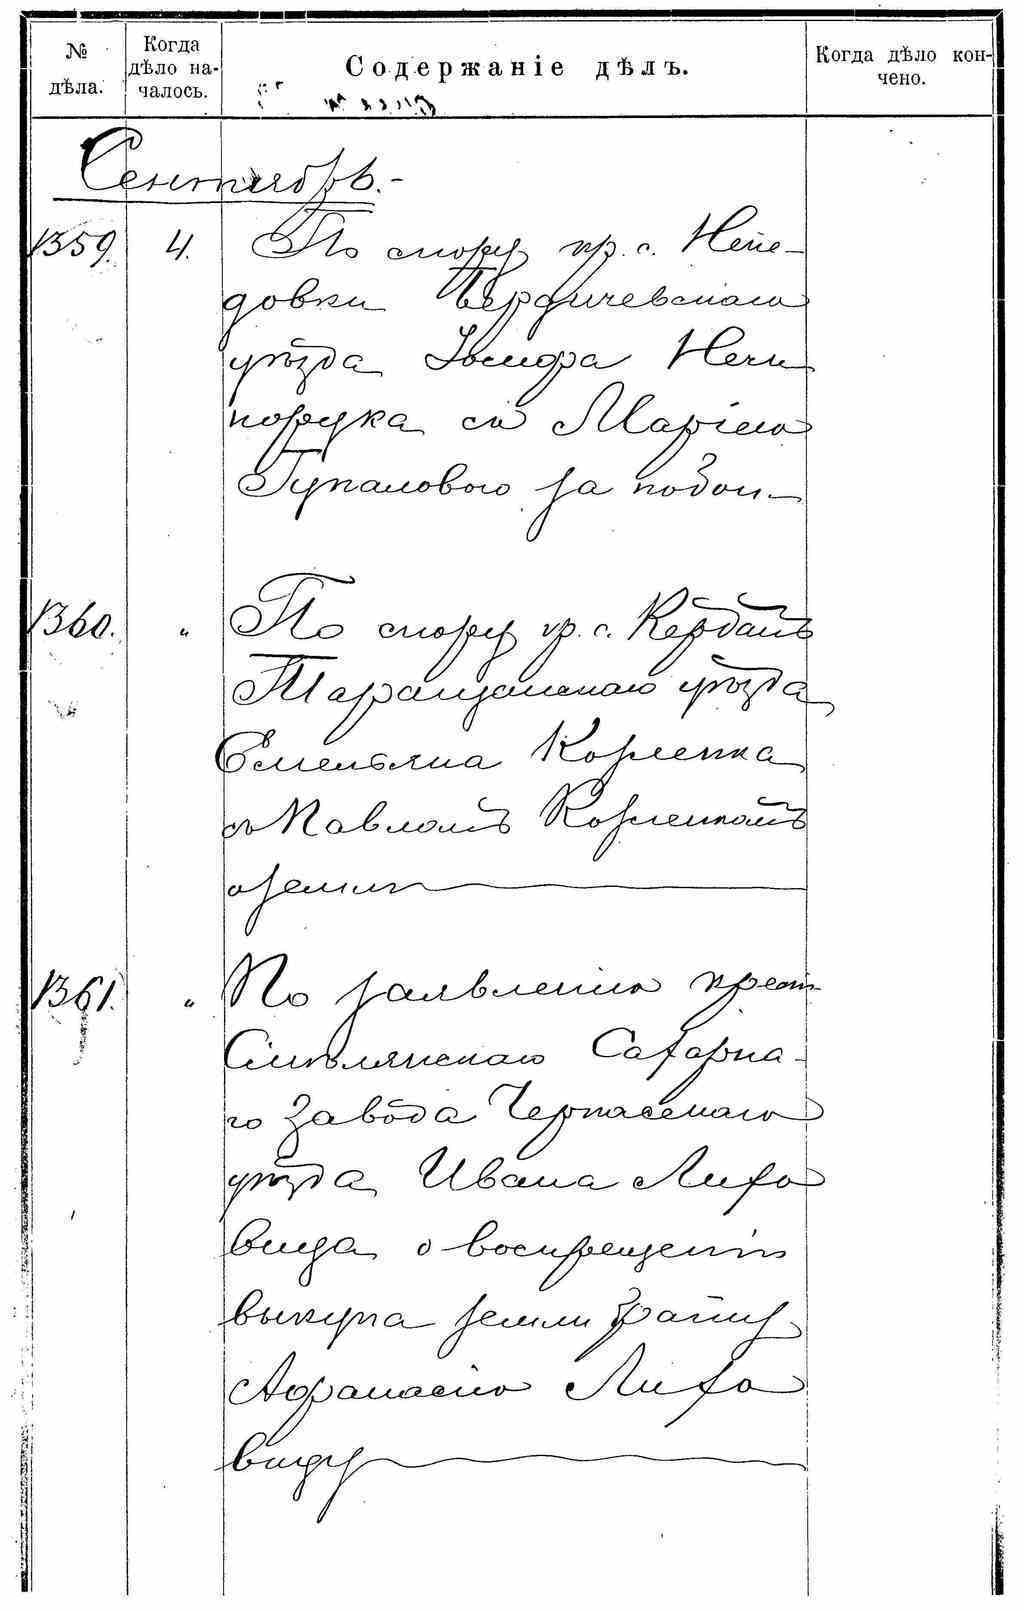 № дѣла.
Когда дѣло на-
чалось.
Содержаніе дѣлъ.
Когда дѣло кон-
чено.
Сентябрь.-
1359. 4. По спору кр. с. Непе-
довки Бердичевскаго
уѣзда Іосифа Нечи
порука съ Маріею
Гупаловою за побои.-
1360. " По спору кр. с. Кердатъ
Таращанскаго уѣзда
Емельяна Корпенка
съ Павломъ Корпенкомъ
о земли
1361. " По заявленію крест
Смѣлянскаго Сахарна-
го завода Черкасскаго
уѣзда Ивана Лихо
вида о воспрещеніи
выкупа земли брату
Афанасію Лихо
виду